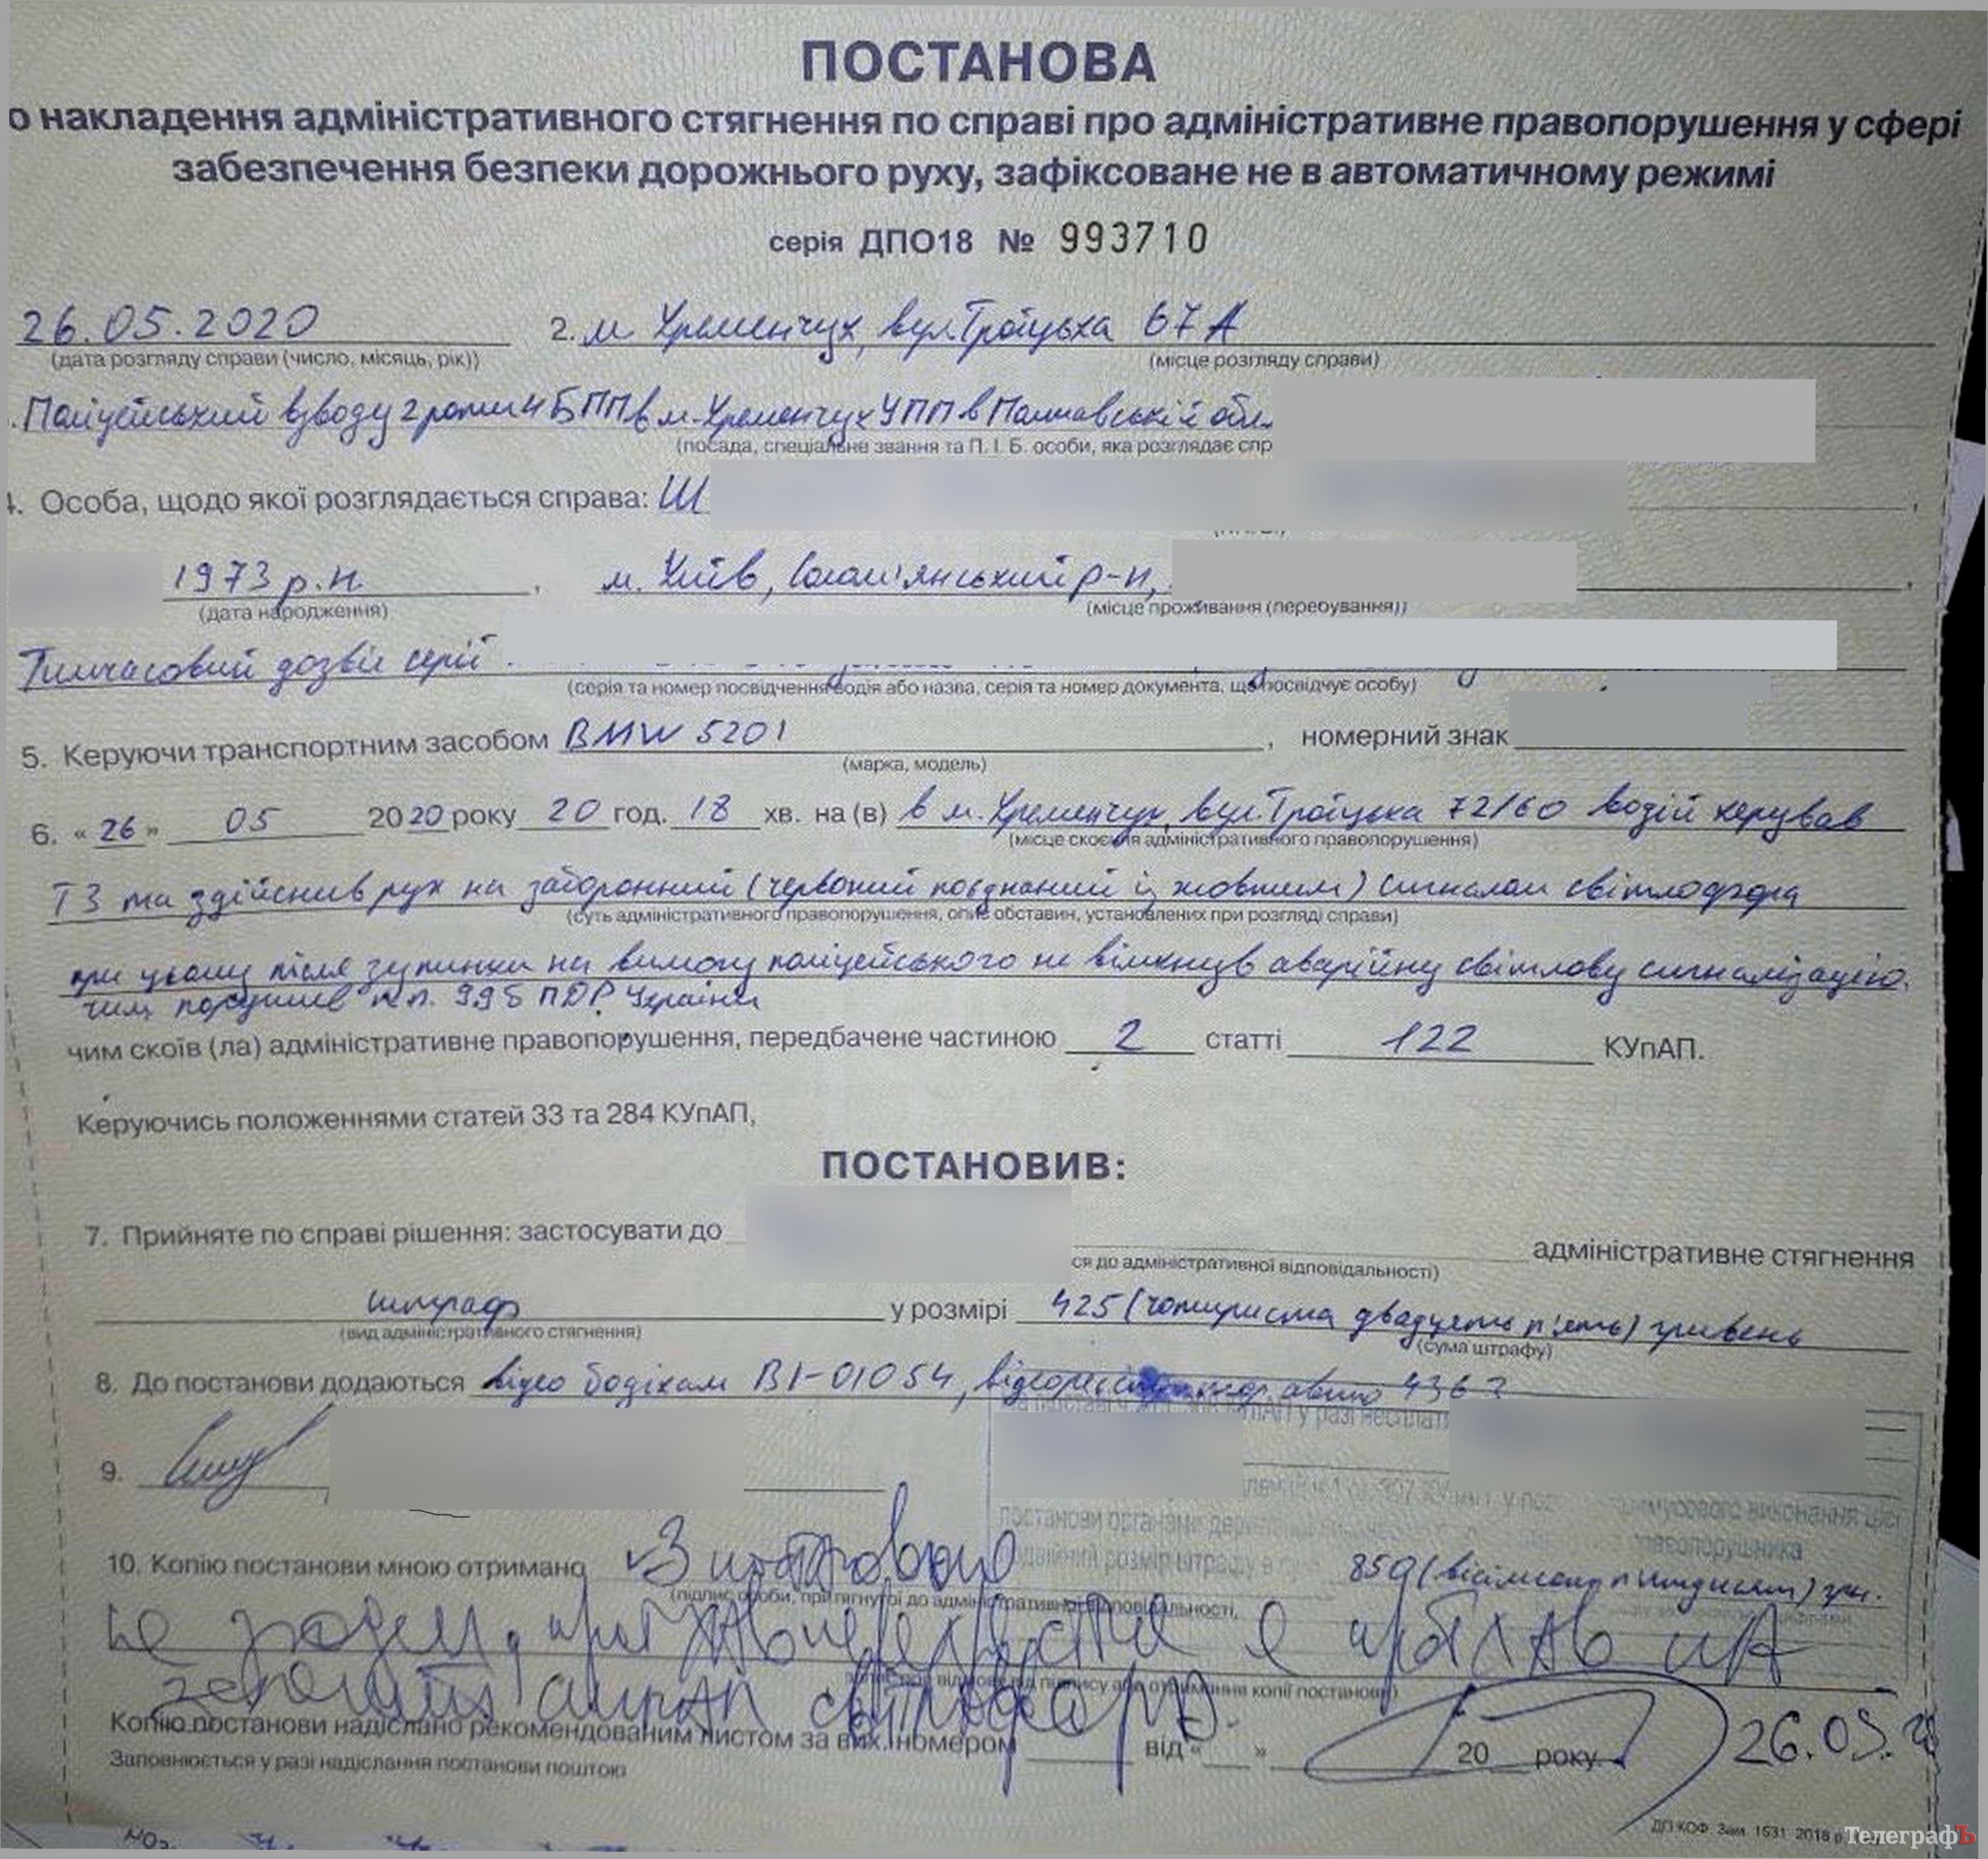 ПОСТАНОВА
о накладення адміністративного стягнення по справі про адміністративне правопорушення у сфері
забезпечення безпеки дорожнього руху, зафіксоване не в автоматичному режимі
серія ДПО18 № 993710
26.05.2020 2. м Кременчук, вул. Троїцька 67 А
(дата розгляду справи (число, місяць, рік)) (місце розгляду справи)
Поліцейський взводу 2 роти 4 БПП в м. Кременчук УПП в Полтавській обл.
(посада, спеціальне звання та П. І. Б. особи, яка розглядає спр
4. Особа, щодо якої розглядається справа: Ш
1973 р.н. , м. Київ, Солом'янський р-н,
(дата народження) (місце проживання (перебування))
Тимчасовий дозвіл серії
(серія та номер посвідчення водія або назва, серія та номер документа, що посвідчує особу)
5. Керуючи транспортним засобом BMW 520i , номерний знак
(марка, модель)
6. « 26 » 05 2020 року 20 год. 18 хв. на (в) в м. Кременчук, вул. Троїцька 72/60 водій керував
(місце скоєння адміністративного правопорушення)
ТЗ та здійснив рух на заборонний (червоний поєднаний із жовтим) сигнал світлофора
(суть адміністративного правопорушення, опис обставин, установлених при розгляді справи)
при цьому після зупинки на вимогу поліцейського не ввімкнув аварійну світлову сигналізацію.
чим порушив п.п. 9.9б ПДР України
чим скоїв (ла) адміністративне правопорушення, передбачене частиною 2 статті 122 КУпАП.
Керуючись положеннями статей 33 та 284 КУпАП,
ПОСТАНОВИВ:
7. Прийняте по справі рішення: застосувати до адміністративне стягнення
ся до адміністративної відповідальності)
штраф у розмірі 425 (чотириста двадцять п'ять) гривень
(вид адміністративного стягнення) (сума штрафу)
8. До постанови додаються відео бодікам ВІ-01054, авто
9.
у разі несплат
примусового виконання цієї
постанови органами
подвійний розмір штрафу правопорушника
10. Копію постанови мною отримано З постановою 850 (вісімсот п'ятдесят) грн.
(підпис особи, притягнутої до адміністративної відповідальності,
не згоден, перехрестя
підпису або отримання копії постанови)
світлофора.
Копію постанови надіслано рекомендованим листом за вих. номером від « » 20 року 26.05.20
Заповнюється у разі надіслання постанови поштою
ДП КОФ. Зам. 1531 2018 р.
ТелеграфЪ